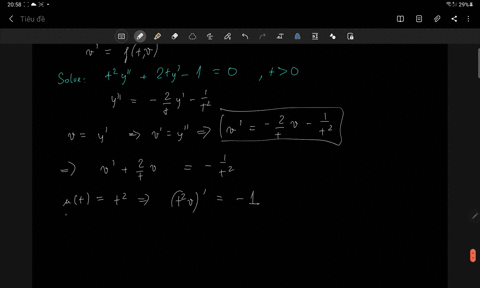 20:58
29%
Tiêu đề
v' = f(t,v)
Solve: t²y'' + 2ty' - 1 = 0 , t>0
y'' = - 2/t y' - 1/t²
v = y' ⇒ v' = y'' ⇒ v' = - 2/t v - 1/t²
⇒ v' + 2/t v = - 1/t²
μ(t) = t² ⇒ (t²v)' = - 1